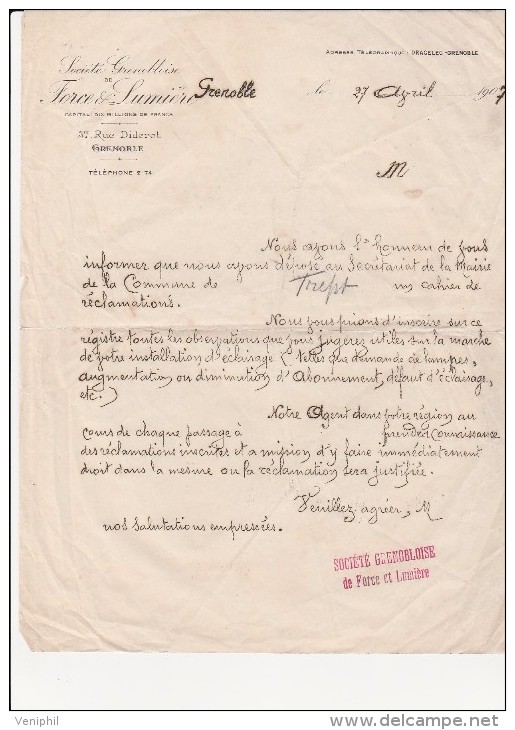 ADRESSE TÉLÉGRAPHIQUE: DRACELEC-GRENOBLE
Société Grenobloise
DE
Force & Lumière
CAPITAL: DIX MILLIONS DE FRANCS
37, Rue Diderot
GRENOBLE
TÉLÉPHONE 2-74
Grenoble le 27 April 1907
M
Nous avons l'honneur de vous
informer que nous avons déposé au Secrétariat de la Mairie
de la Commune de Trept un cahier de
réclamations.
Nous vous prions d'inscrire sur ce
régistre toutes les observations que vous jugerez utiles sur la marche
de votre installation d'éclairage (telles que demande de lampes,
augmentation ou diminution d'Abonnement, défaut d'éclairage,
etc.)
Notre Agent dans votre région au
cours de chaque passage à prendra Connaissance
des réclamations inscrites et a mission d'y faire immédiatement
droit dans la mesure ou la réclamation sera justifiée.
Veuillez agréer, M
nos salutations empressées.
SOCIÉTÉ GRENOBLOISE
de Force et Lumière
Veniphil
http://www.delcampe.net